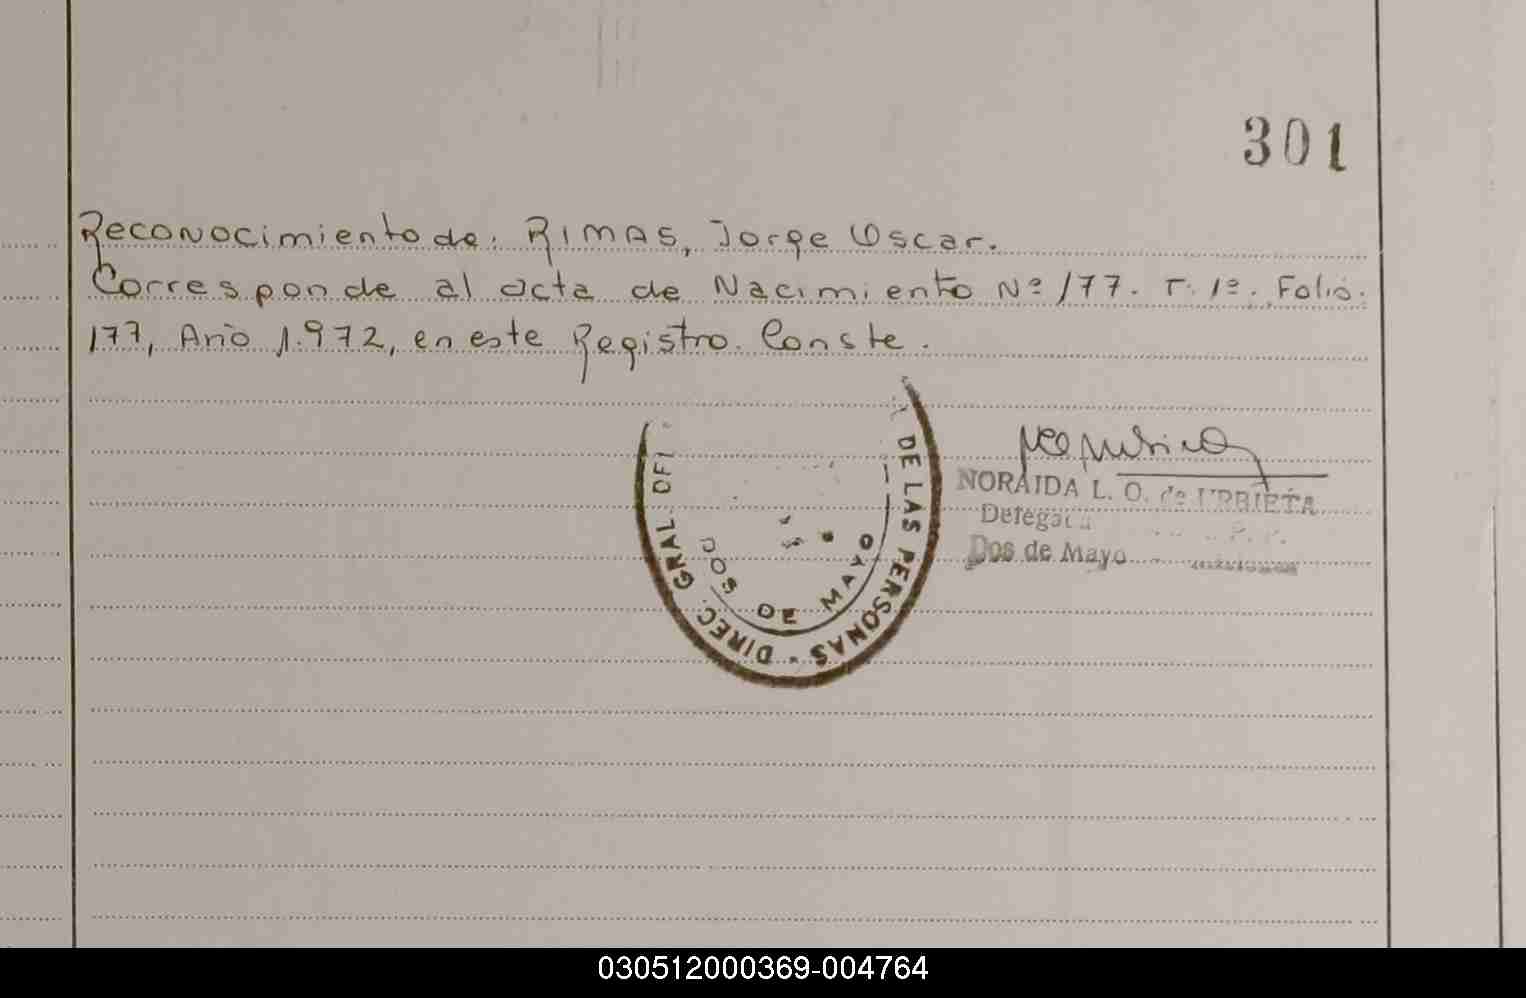 301
Reconocimiento de. RIMAS, Jorge Oscar.
Corresponde al acta de Nacimiento Nº 177. T. 1º. Folio.
177, Año 1.972, en este Registro. Conste.
DIREC. GRAL. DEL DE LAS PERSONAS -
DOS DE MAYO
NORAIDA L. O. de URBIETA
Dos de Mayo
030512000369-004764